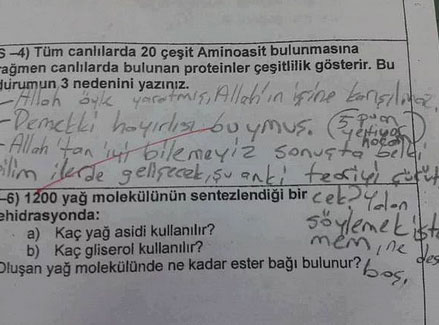 S -4) Tüm canlılarda 20 çeşit Aminoasit bulunmasına
rağmen canlılarda bulunan proteinler çeşitlilik gösterir. Bu
durumun 3 nedenini yazınız.
- Allah öyle yaratmış, Allah'ın işine karışılmaz.
- Demekki hayırlısı buymuş. (5 puan
yetiyor
hocam)
- Allah'tan iyi bilemeyiz sonuçta belki
bilim ilerde gelişecek, şu anki teoriyi çürüt
-6) 1200 yağ molekülünün sentezlendiği bir
cek? Yalan
ehidrasyonda:
söylemek iste
a) Kaç yağ asidi kullanılır?
mem, ne des
b) Kaç gliserol kullanılır?
Oluşan yağ molekülünde ne kadar ester bağı bulunur?
boş.